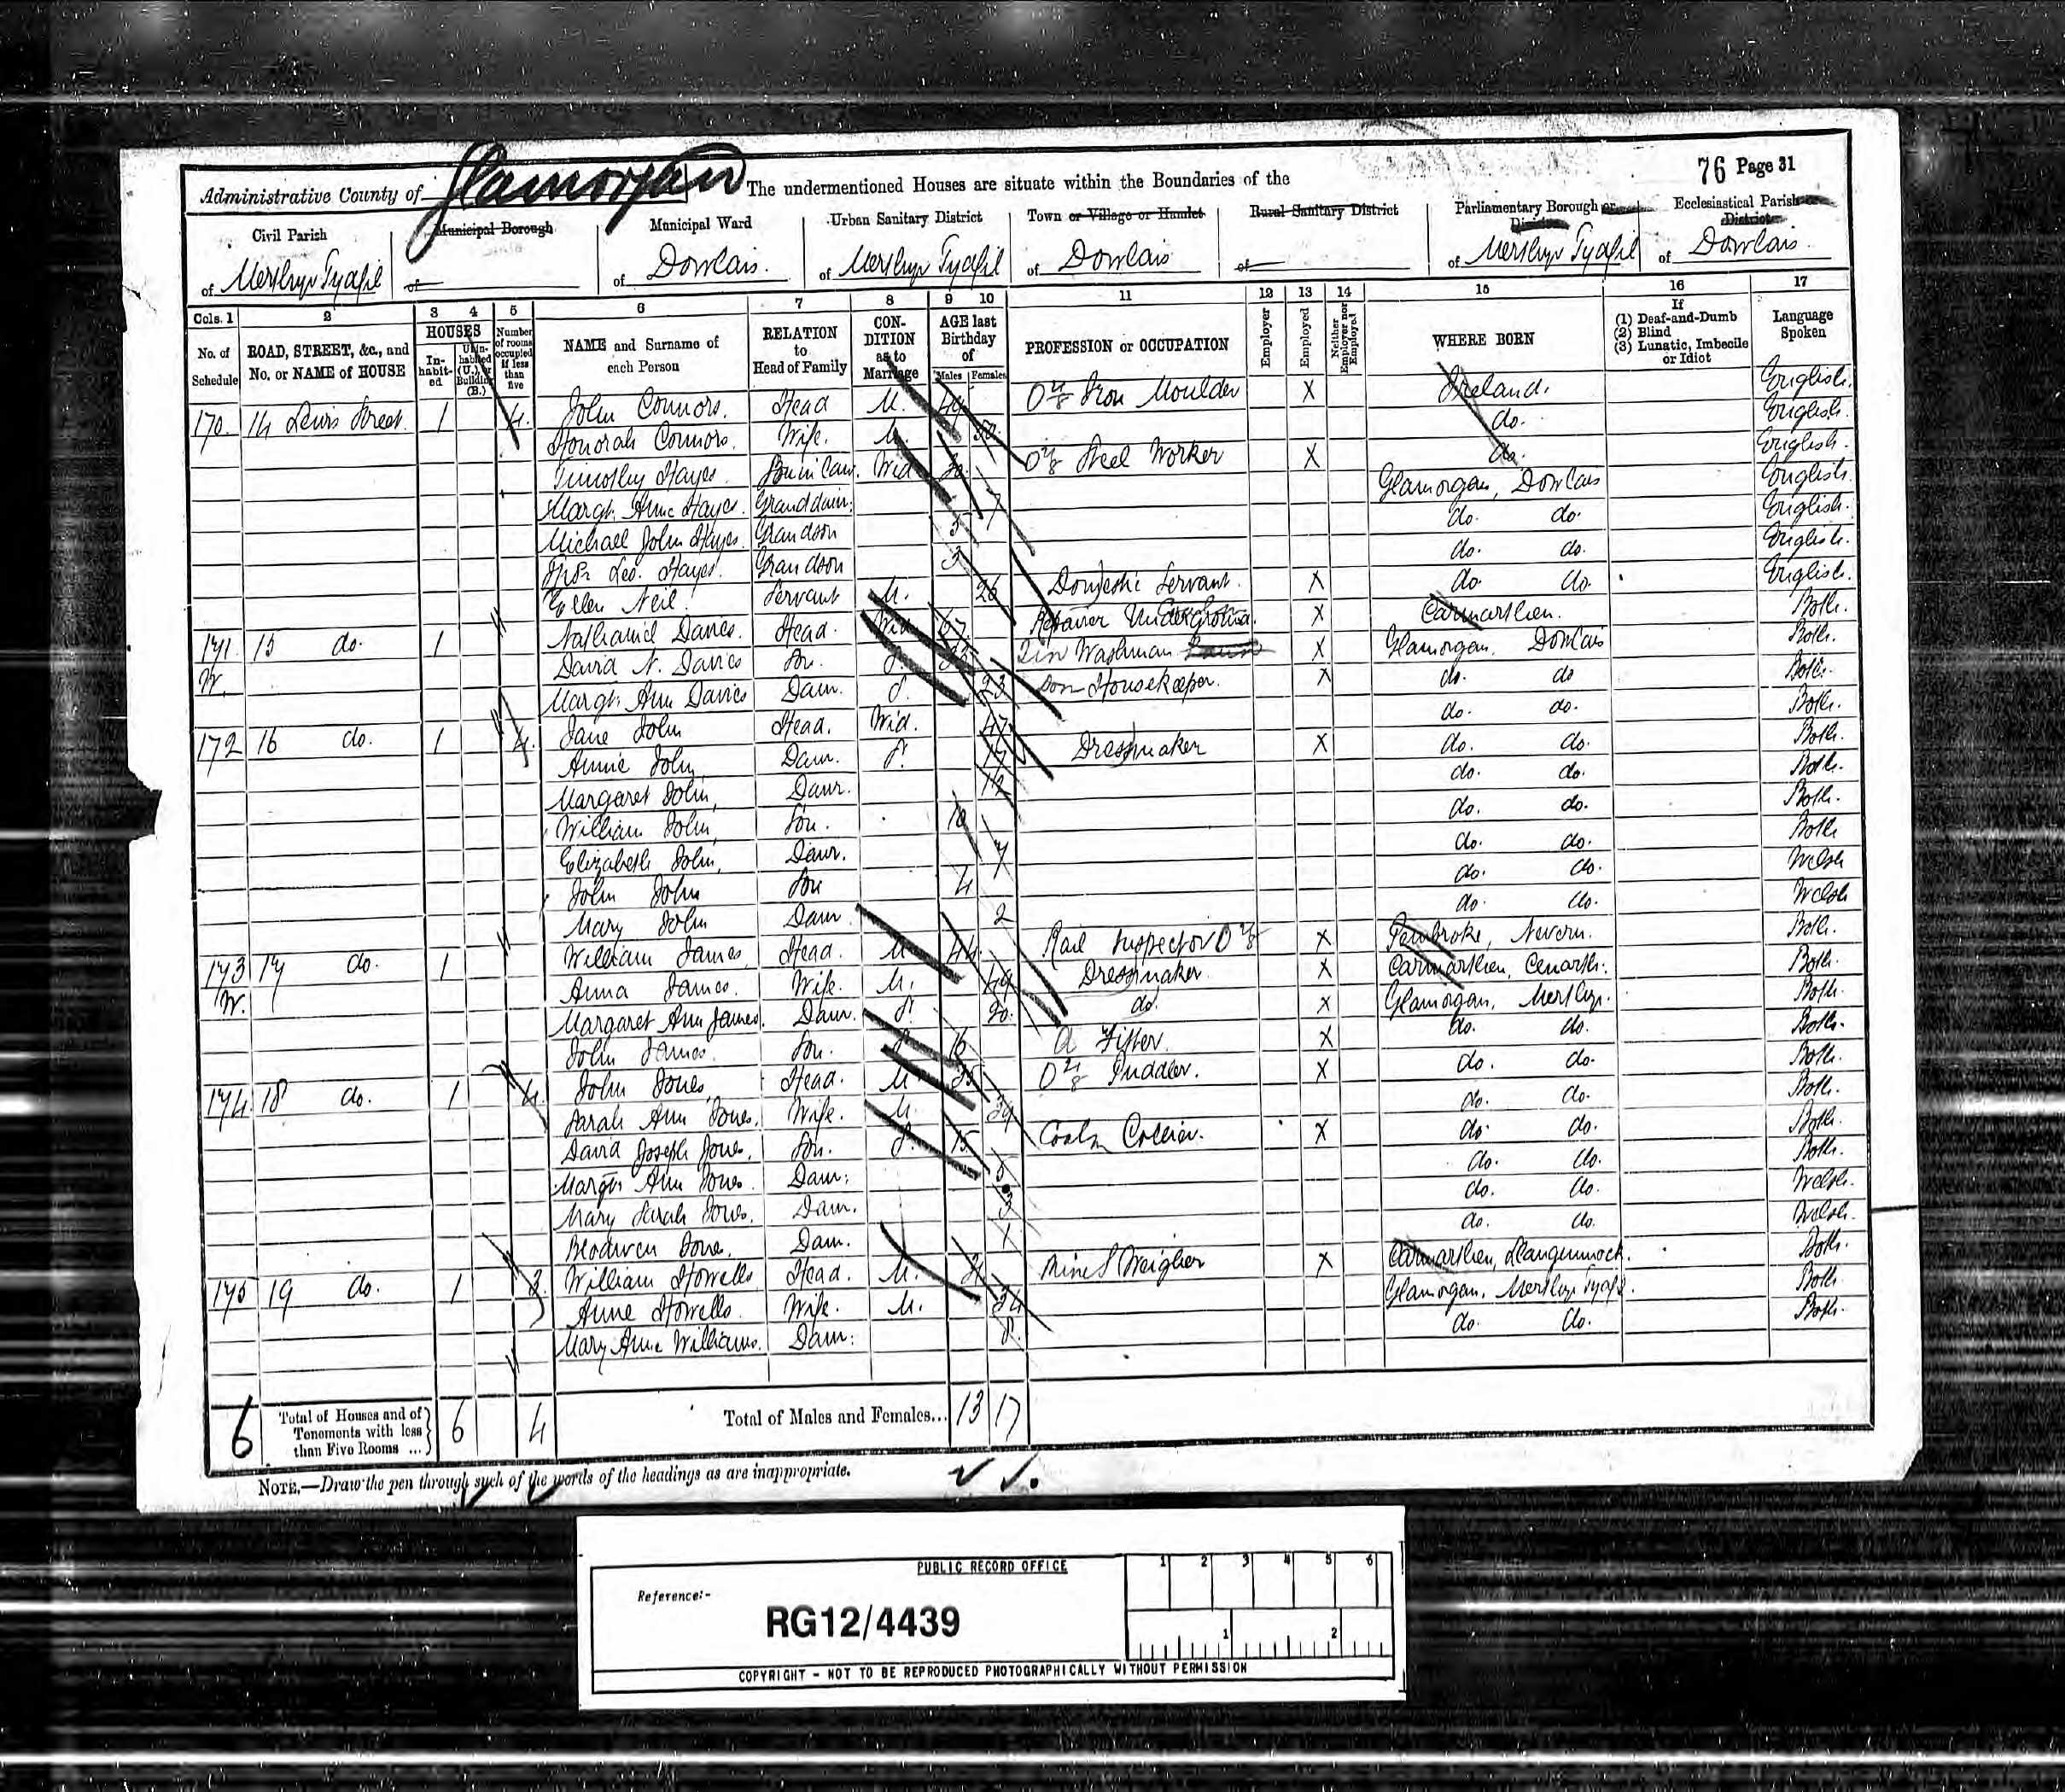 76 Page 31
Administrative County of Glamorgan The undermentioned Houses are situate within the Boundaries of the
Civil Parish Municipal Borough Municipal Ward Urban Sanitary District Town or Village or Hamlet Rural Sanitary District Parliamentary Borough or Division Ecclesiastical Parish or District
of Merthyr Tydfil of of Dowlais. of Merthyr Tydfil of Dowlais of of Merthyr Tydfil of Dowlais.
Cols. 1 2 3 4 5 6 7 8 9 10 11 12 13 14 15 16 17
No. of Schedule ROAD, STREET, &c., and No. or NAME of HOUSE HOUSES In-habit-ed Unin-habited (U.), or Building (B.) Number of rooms occupied if less than five NAME and Surname of each Person RELATION to Head of Family CON-DITION as to Marriage AGE last Birthday of Males Females PROFESSION or OCCUPATION Employer Employed Neither Employer nor Employed WHERE BORN If (1) Deaf-and-Dumb (2) Blind (3) Lunatic, Imbecile or Idiot Language Spoken
170. 14 Lewis Street. 1 4. John Connors. Head M. 49 Iron Moulder X Ireland. English.
Honorah Connors. Wife. M. 50 do. English.
Timothy Hayes Son in law. Wid Steel Worker X do. English.
Margt. Anne Hayes. Granddaur: 7 Glamorgan, Dowlais English.
Michael John Hayes. Grandson 5 do. do. English.
Leo. Hayes. Grandson 3 do. do. English.
Ellen Neil. Servant M. 26 Domestic Servant. X do do English.
171. 15 do. 1 Nathaniel Davies. Head. Wid 67 Repairer Underground. X Carmarthen. Both.
W. David N. Davies Son. S. Washman X Glamorgan, Dowlais Both.
Margt. Ann Davies Daur. S. 23 Dom Housekeeper. X do. do Both.
172 16 do. 1 4. Jane John Head. Wid. 47 do. do. Both.
Annie John, Daur. S. Dressmaker X do. do. Both.
Margaret John, Daur. do. do. Both.
William John, Son. 10 do. do. Both.
Elizabeth John, Daur. 7 do. do. Both
John John Son 4 do. do. Welsh
Mary John Daur 2 do. do. Welsh
173 17 do. 1 William James, Head. M 44 Rail Inspector X Pembroke, Nevern. Both.
W. Anna James. Wife. M. 49 Dressmaker. X Carmarthen, Cenarth. Both.
Margaret Ann James. Daur. S. 20. do. X Glamorgan, Merthyr. Both.
John James. Son. S 16 A Fitter. X do. do. Both.
174 18 do. 1 4. John Jones, Head. M 35 Puddler. X do. do. Both.
Sarah Ann Jones. Wife. M. do. do. Both.
David Joseph Jones. Son. S. 15 Coalm Collier. X do. do. Both.
Margt. Ann Jones. Daur: 5 do. do. Both.
Mary Sarah Jones. Daur. 3 do. do. Welsh.
Blodwen Jones. Daur. 1 do. do. Welsh.
175 19 do. 1 3. William Howells Head. M. Mine Weigher X Carmarthen, Llangennech. Both.
Anne Howells. Wife. M. 34 Glamorgan, Merthyr Tydfil. Both
Mary Anne Williams. Daur: 8. do. do. Both.
6 Total of Houses and of Tenements with less than Five Rooms ... 6 4 Total of Males and Females... 13 17
NOTE.—Draw the pen through such of the words of the headings as are inappropriate.
PUBLIC RECORD OFFICE
Reference:-
RG12/4439
1 2 3 4 5 6
1 2
COPYRIGHT - NOT TO BE REPRODUCED PHOTOGRAPHICALLY WITHOUT PERMISSION